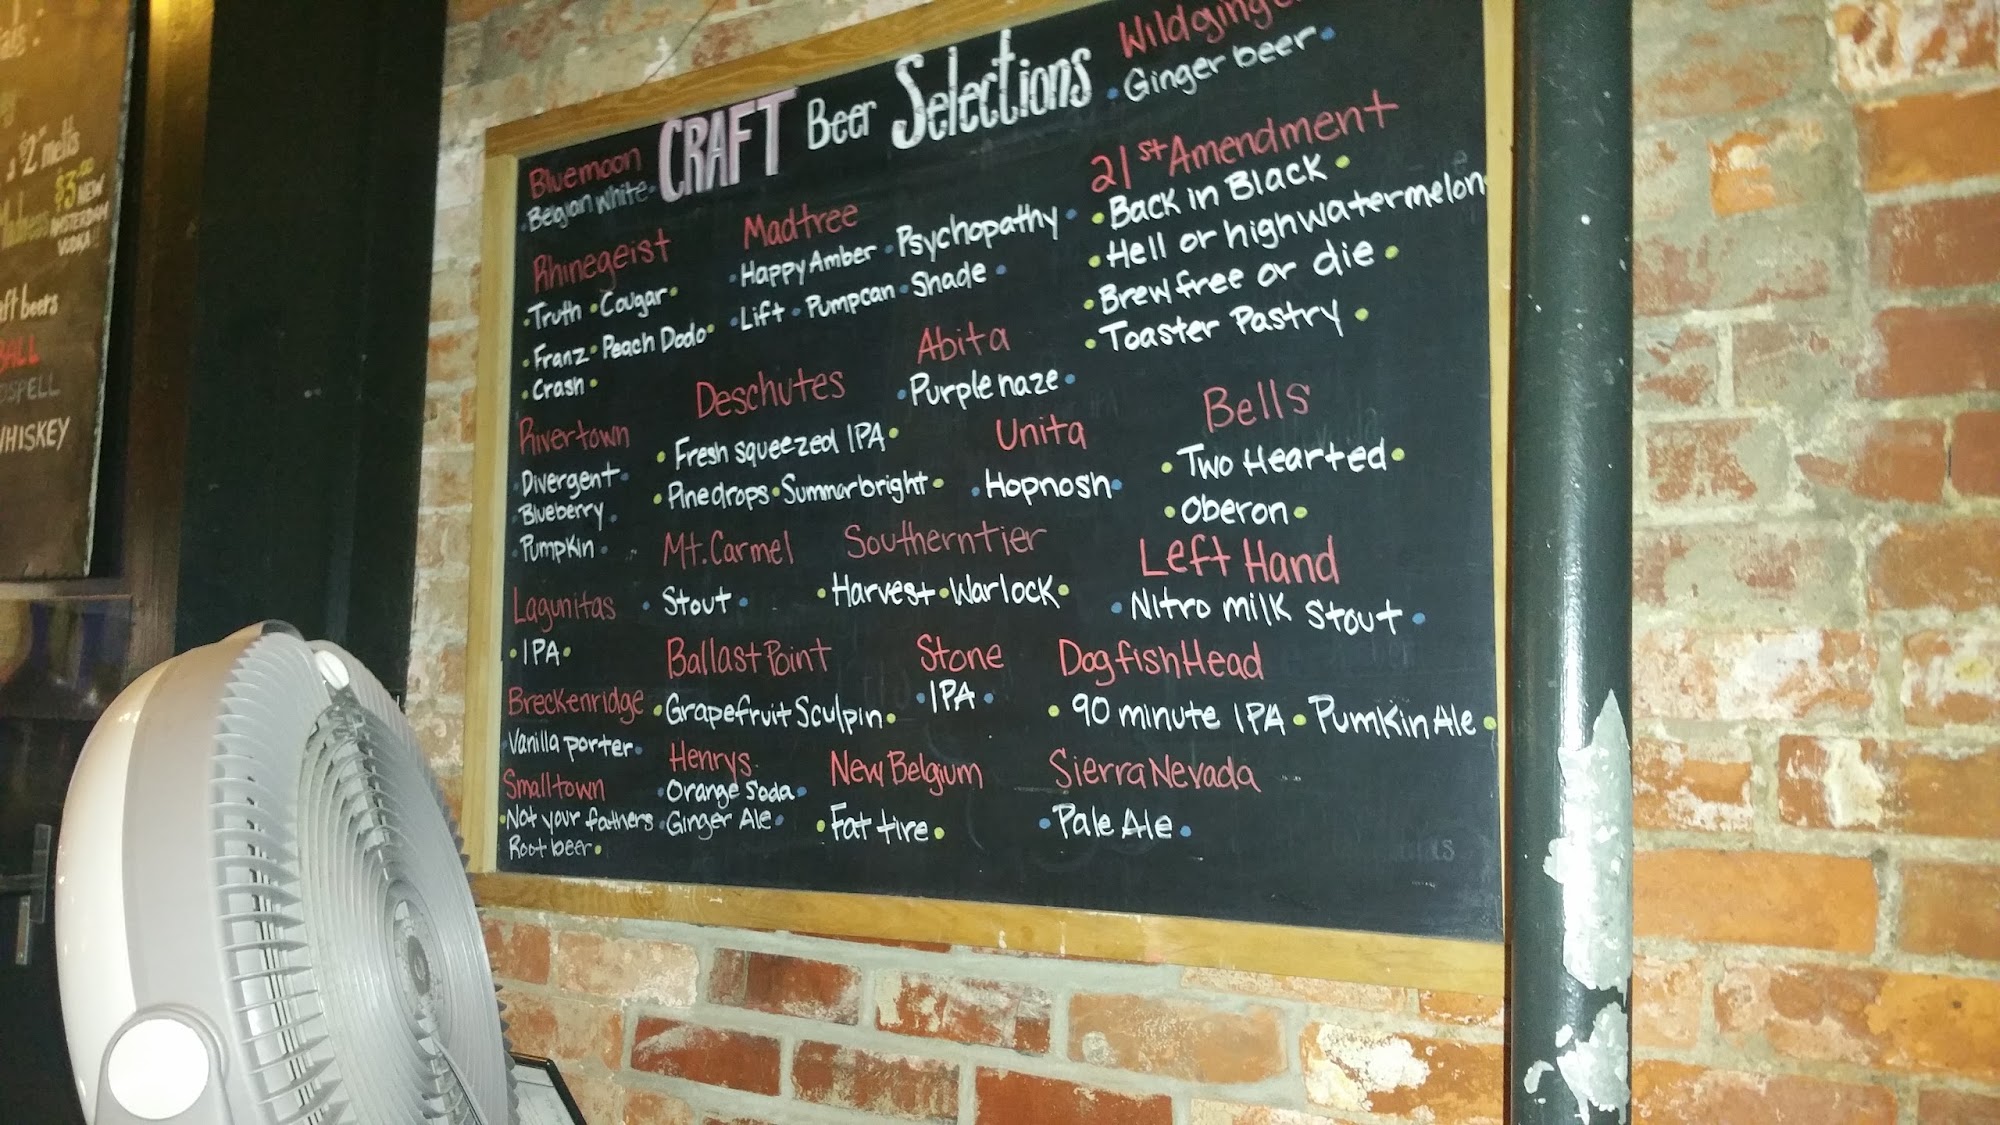 $2 melts
$3.00 NEW
AMSTERDAM
VODKA
beers
BALL
WHISKEY
CRAFT Beer Selections
Bluemoon
Belgian white
Rhinegeist
Truth • Cougar
Franz • Peach Dodo
Crash
Rivertown
Divergent
Blueberry
Pumpkin
Lagunitas
IPA
Breckenridge
Vanilla porter
Smalltown
Not your fathers
Root beer
Madtree
Happy Amber • Psychopathy
Lift • Pumpcan • Shade
Deschutes
Fresh squeezed IPA
Pinedrops • Summarbright
Mt. Carmel
Stout
Ballast Point
Grapefruit Sculpin
Henrys
Orange Soda
Ginger Ale
Abita
Purple haze
Unita
Hopnosh
Southerntier
Harvest • Warlock
Stone
IPA
New Belgium
Fat tire
Wildginger
Ginger beer
21st Amendment
Back in Black
Hell or highwatermelon
Brew free or die
Toaster Pastry
Bells
Two Hearted
Oberon
Left Hand
Nitro milk Stout
Dogfish Head
90 minute IPA • Pumkin Ale
Sierra Nevada
Pale Ale